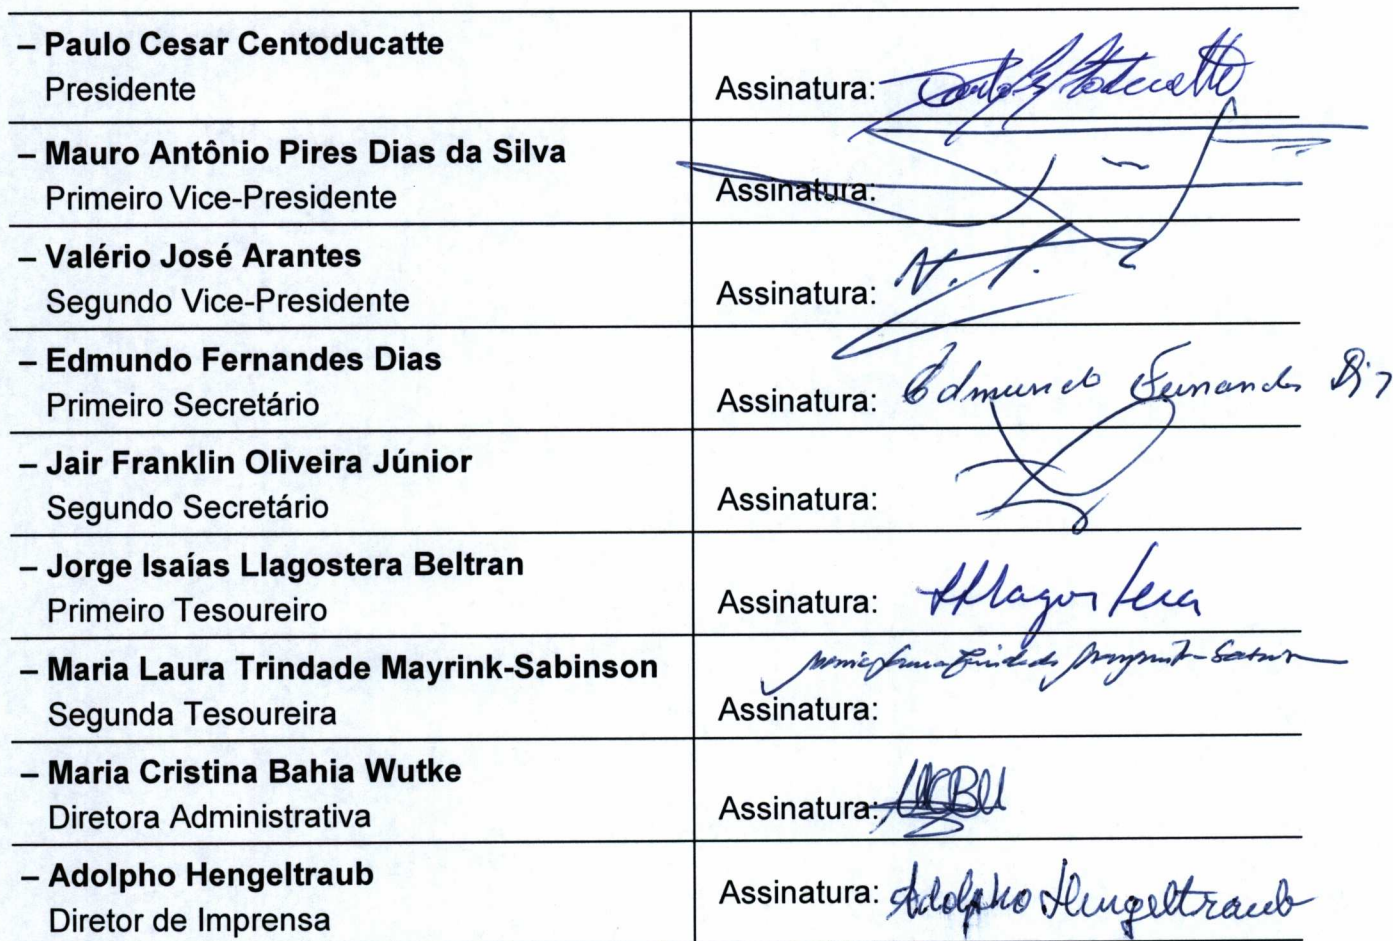 – Paulo Cesar Centoducatte
Presidente
Assinatura:
– Mauro Antônio Pires Dias da Silva
Primeiro Vice-Presidente
Assinatura:
– Valério José Arantes
Segundo Vice-Presidente
Assinatura:
– Edmundo Fernandes Dias
Primeiro Secretário
Assinatura: Edmundo Fernandes Dias
– Jair Franklin Oliveira Júnior
Segundo Secretário
Assinatura:
– Jorge Isaías Llagostera Beltran
Primeiro Tesoureiro
Assinatura: Llagostera
– Maria Laura Trindade Mayrink-Sabinson
Segunda Tesoureira
Assinatura:
– Maria Cristina Bahia Wutke
Diretora Administrativa
Assinatura:
– Adolpho Hengeltraub
Diretor de Imprensa
Assinatura: Adolpho Hengeltraub